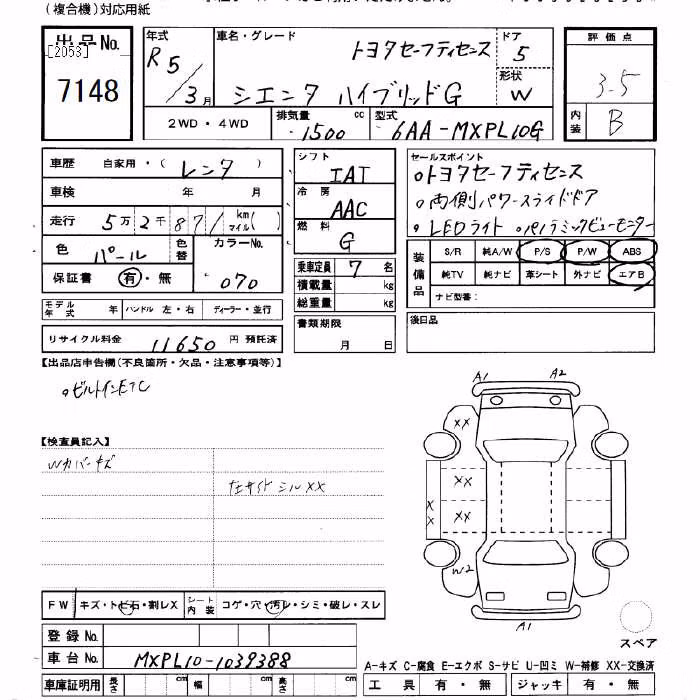 (複合機)対応用紙
出品No.
[2053]
7148
年式
R5/3月
車名・グレード
トヨタセーフティセンス
シエンタ ハイブリッドG
ドア
5
形状
W
2WD・4WD
排気量 cc
1500
型式
6AA-MXPL10G
評価点
3.5
内装
B
車歴 自家用・(レンタ)
車検 年 月
走行 5万2千871 km マイル( )
色 パール 色替 カラーNo. 070
保証書 有・無
モデル年式 年 ハンドル 左・右 ディーラー・並行
リサイクル料金 11650 円 預託済
シフト
IAT
冷房
AAC
燃料
G
乗車定員 7 名
積載量 kg
総重量 kg
書類期限
月 日
セールスポイント
。トヨタセーフティセンス
。両側パワースライドドア
。LEDライト 。パノラミックビューモニター
装備品 S/R 純A/W P/S P/W ABS
純TV 純ナビ 革シート 外ナビ エアB
ナビ型番:
後日品
【出品店申告欄(不良箇所・欠品・注意事項等)】
。ビルトインETC
【検査員記入】
Wカバーキズ
左サイドシルXX
A1 A2
XX
XX
XX
XX
W2
A1
スペア
FW キズ・トビ石・割レX シート内装 コゲ・穴・汚レ・シミ・破レ・スレ
登録No.
車台No. MXPL10-1039388
車庫証明用 長さ cm 幅 cm 高さ cm
A-キズ C-腐食 E-エクボ S-サビ U-凹ミ W-補修 XX-交換済
工具 有・無 ジャッキ 有・無